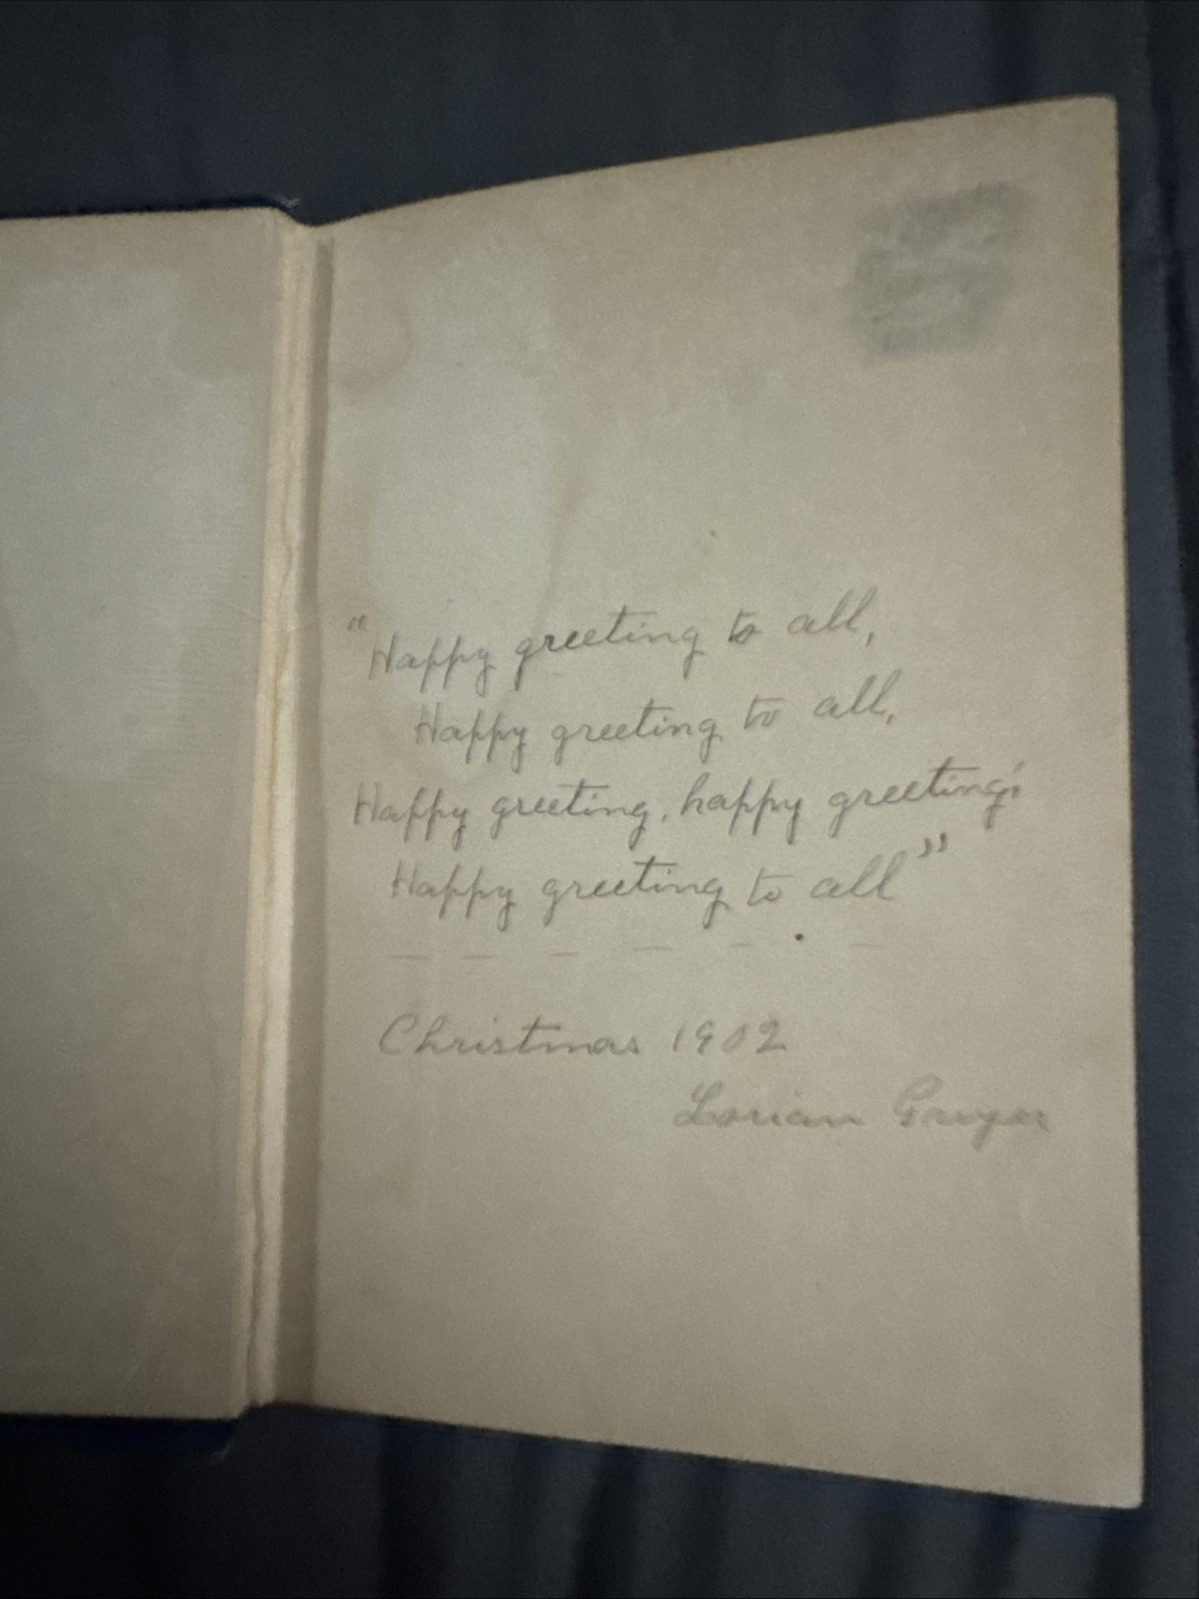 "Happy greeting to all,
Happy greeting to all,
Happy greeting, happy greeting;
Happy greeting to all"
Christmas 1902
Lorian